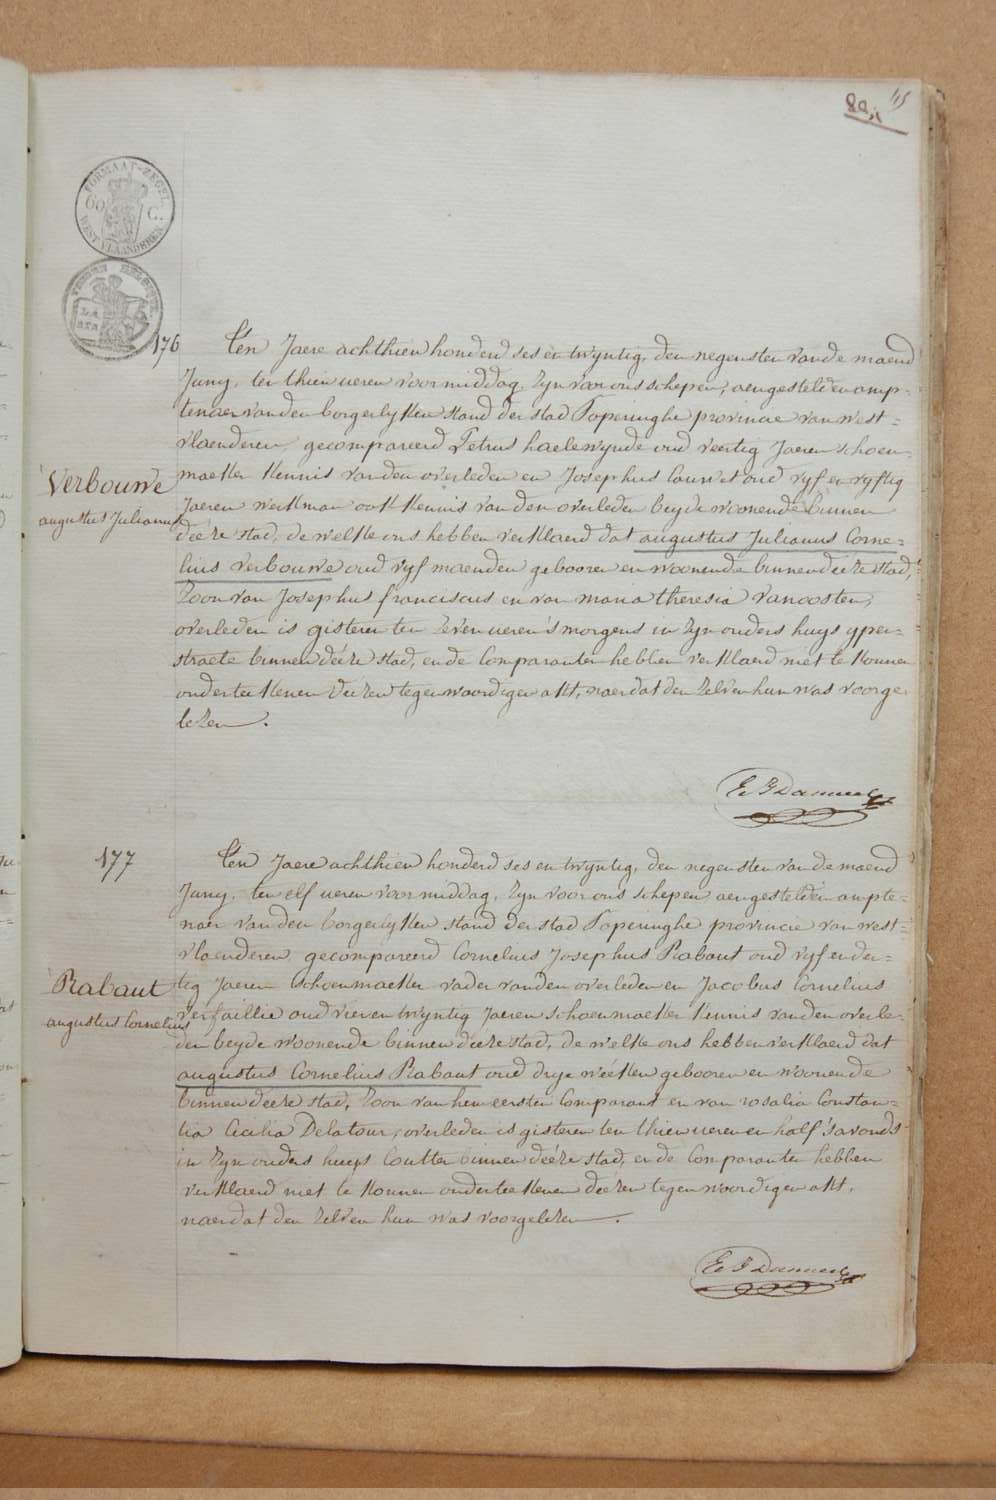 115
FORMAAT-ZEGEL
60 C.
WEST VLAANDEREN
176
Ten Jaere achthien honderd ses en twyntig, den negensten van de maend
Juny, ten thien ueren voormiddag, Zyn voor ons schepen, aengestelden amp=
tenaer van den borgerlyken stand der stad Poperinghe provincie van west=
vlaenderen, gecompareerd Petrus haelewynde oud veertig Jaeren schoen=
maeker kennis van den overleden en Josephus Cauwet oud vyf en vyftig
Verbouwe
augustus Julianus
Jaeren werkman ook kennis van den overleden beyde woonende binnen
deéze stad, de welke ons hebben verklaerd dat augustus Julianus Corne=
lius verbouwe oud vyf maenden gebooren en woonende binnen deéze stad,
Zoon van Josephus franciscus en van maria theresia vanoosten,
overleden is gisteren ten Zeven ueren 's morgens in Zyn ouders huys yper=
straete binnen deéze stad, en de Comparanten hebben verklaerd niet te konnen
onderteekenen deézen tegenwoordigen akt, naer dat den Zelven hun was voorge
lezen.
177
Ten Jaere achthien honderd ses en twyntig, den negensten van de maend
Juny, ten elf ueren voormiddag, Zyn voor ons schepen aengestelden ampte=
naer van den borgerlyken stand der stad Poperinghe provincie van west=
vlaenderen, gecompareerd Cornelius Josephus Rabaut oud vyf en der=
tig Jaeren schoenmaeker vader van den overleden en Jacobus Cornelius
Rabaut
augustus Cornelius
Verfaillie oud vier en twyntig Jaeren schoenmaeker kennis van den overle=
den beyde woonende binnen deéze stad, de welke ons hebben verklaerd dat
augustus Cornelius Rabaut oud drye wéeken gebooren en woonende
binnen deéze stad, Zoon van hem eersten Comparant en van rosalia Constan=
tia Cecilia Delatour, overleden is gisteren ten thien ueren en half 's avonds
in Zyn ouders huys Coutter binnen deéze stad, en de Comparanten hebben
verklaerd niet te konnen onderteekenen deézen tegenwoordigen akt,
naer dat den Zelven hun was voorgelezen.